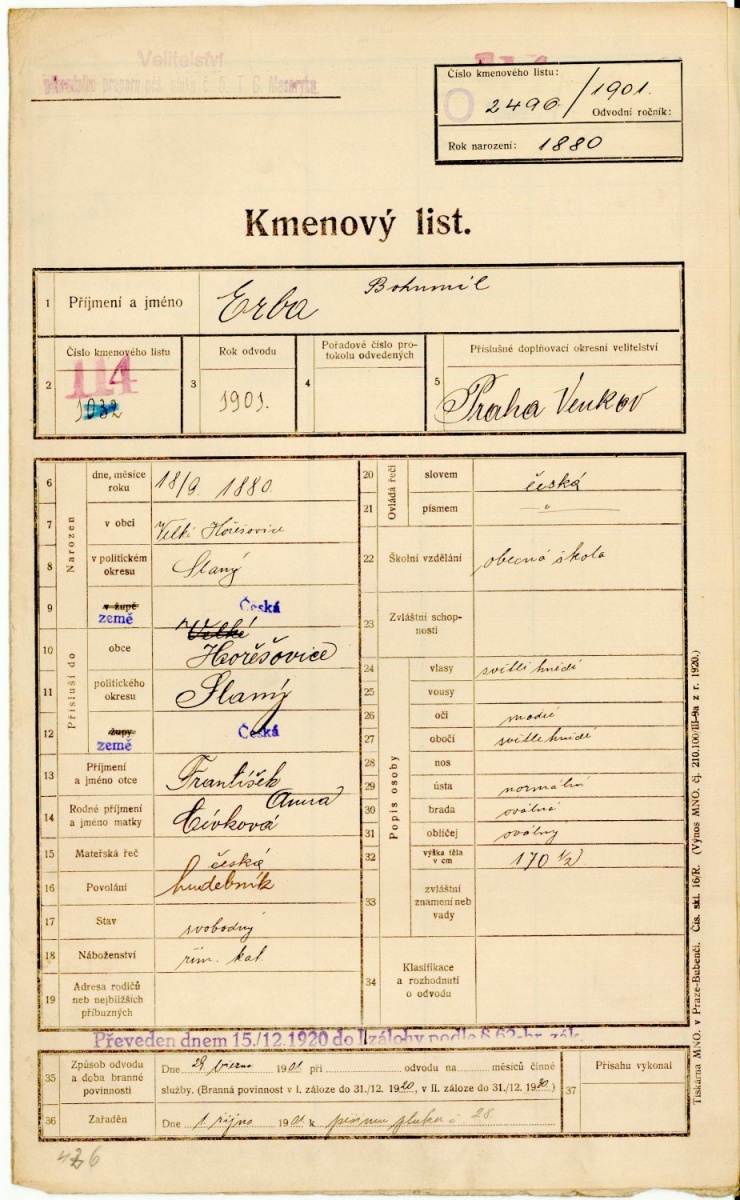 Velitelství
pěš. pluku č. 5, T. G. Masaryka.
Číslo kmenového listu:
2490/1901.
Odvodní ročník:
Rok narození: 1880
Kmenový list.
1 Příjmení a jméno Erba Bohumil
2 Číslo kmenového listu 114 1032
3 Rok odvodu 1901.
4 Pořadové číslo pro-
tokolu odvedených
5 Příslušné doplňovací okresní velitelství
Praha Venkov
Narozen
6 dne, měsíce
roku 18/9. 1880.
7 v obci Velké Hořešovice
8 v politickém
okresu Slaný
9 v župě
země Česká
Přísluší do
10 obce Velké
Hořešovice
11 politického
okresu Slaný
12 župy
země Česká
13 Příjmení
a jméno otce František
14 Rodné příjmení
a jméno matky Anna
Cívková
15 Mateřská řeč česká
16 Povolání hudebník
17 Stav svobodný
18 Náboženství řím. kat.
19 Adresa rodičů
neb nejbližších
příbuzných
Ovládá řeči
20 slovem česká
21 písmem - " -
22 Školní vzdělání obecná škola
23 Zvláštní schop-
nosti
Popis osoby
24 vlasy světle hnědé
25 vousy
26 oči modré
27 obočí světle hnědé
28 nos
29 ústa normální
30 brada oválná
31 obličej oválný
32 výška těla
v cm 170 1/2
33 zvláštní
znamení neb
vady
34 Klasifikace
a rozhodnutí
o odvodu
Převeden dnem 15./12.1920 do I. zálohy podle § 62-br. zák.
35 Způsob odvodu
a doba branné
povinnosti
Dne 29. března 1901 při odvodu na měsíců činné
služby. (Branná povinnost v I. záloze do 31./12. 1920, v II. záloze do 31./12. 1930.)
36 Zařaděn Dne 1. října 1901 k pěšímu pluku č. 28.
37 Přísahu vykonal
Tiskárna MNO. v Praze-Bubenči. Čís. skl. 16/R. (Výnos MNO. čj. 210.100/III-9a z r. 1920.)